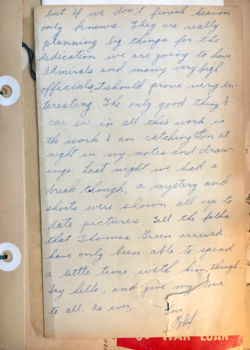 but if we don't finish heaven
only knows. They are really
planning big things for the
dedication we are going to have
Admirals and many very high
officials, it should prove very in-
teresting. The only good thing I
can see in all this work is
the work I am catching on at
night in my notes and draw-
ings. Last night we had a
break though, a mystery and
shorts were shown all up to
date pictures. Tell the folks
that Thomas Green arrived.
have only been able to spend
a little time with him, though,
say hello, and give my love
to all. as ever,
Love
WAR LOAN